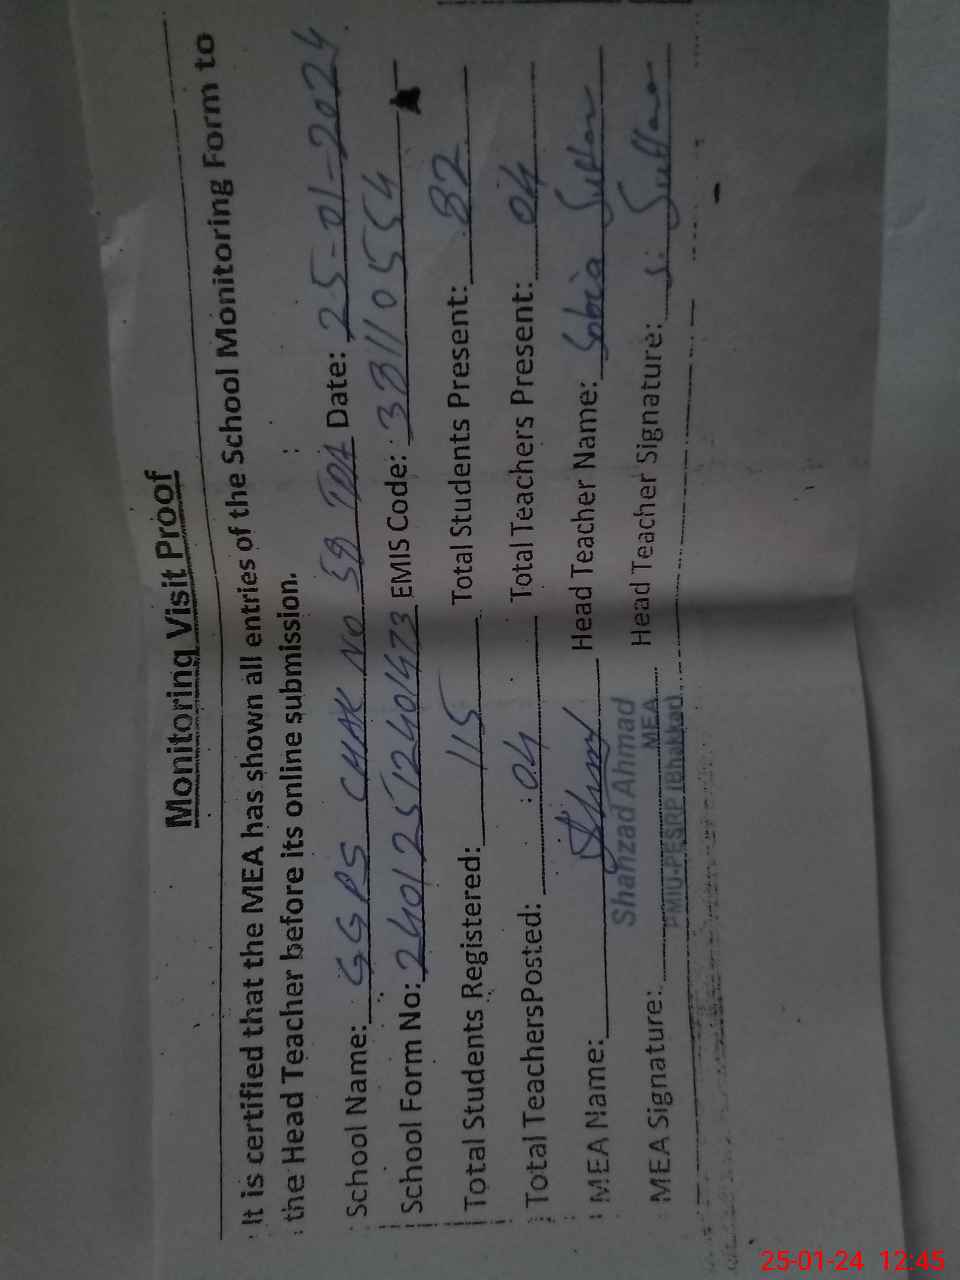 Monitoring Visit Proof
It is certified that the MEA has shown all entries of the School Monitoring Form to
the Head Teacher before its online submission.
School Name: GGPS CHAK NO 58 TDA Date: 25-01-2024
School Form No: 24012512401473 EMIS Code: 33110554
Total Students Registered: 115 Total Students Present: 82
Total TeachersPosted: 04 Total Teachers Present: 04
MEA Name: Head Teacher Name: Sobia Suttar
Shahzad Ahmad
MEA
MEA Signature: PMIU-PESRP (Bhakkar) Head Teacher Signature: S. Suttar
25-01-24 12:45